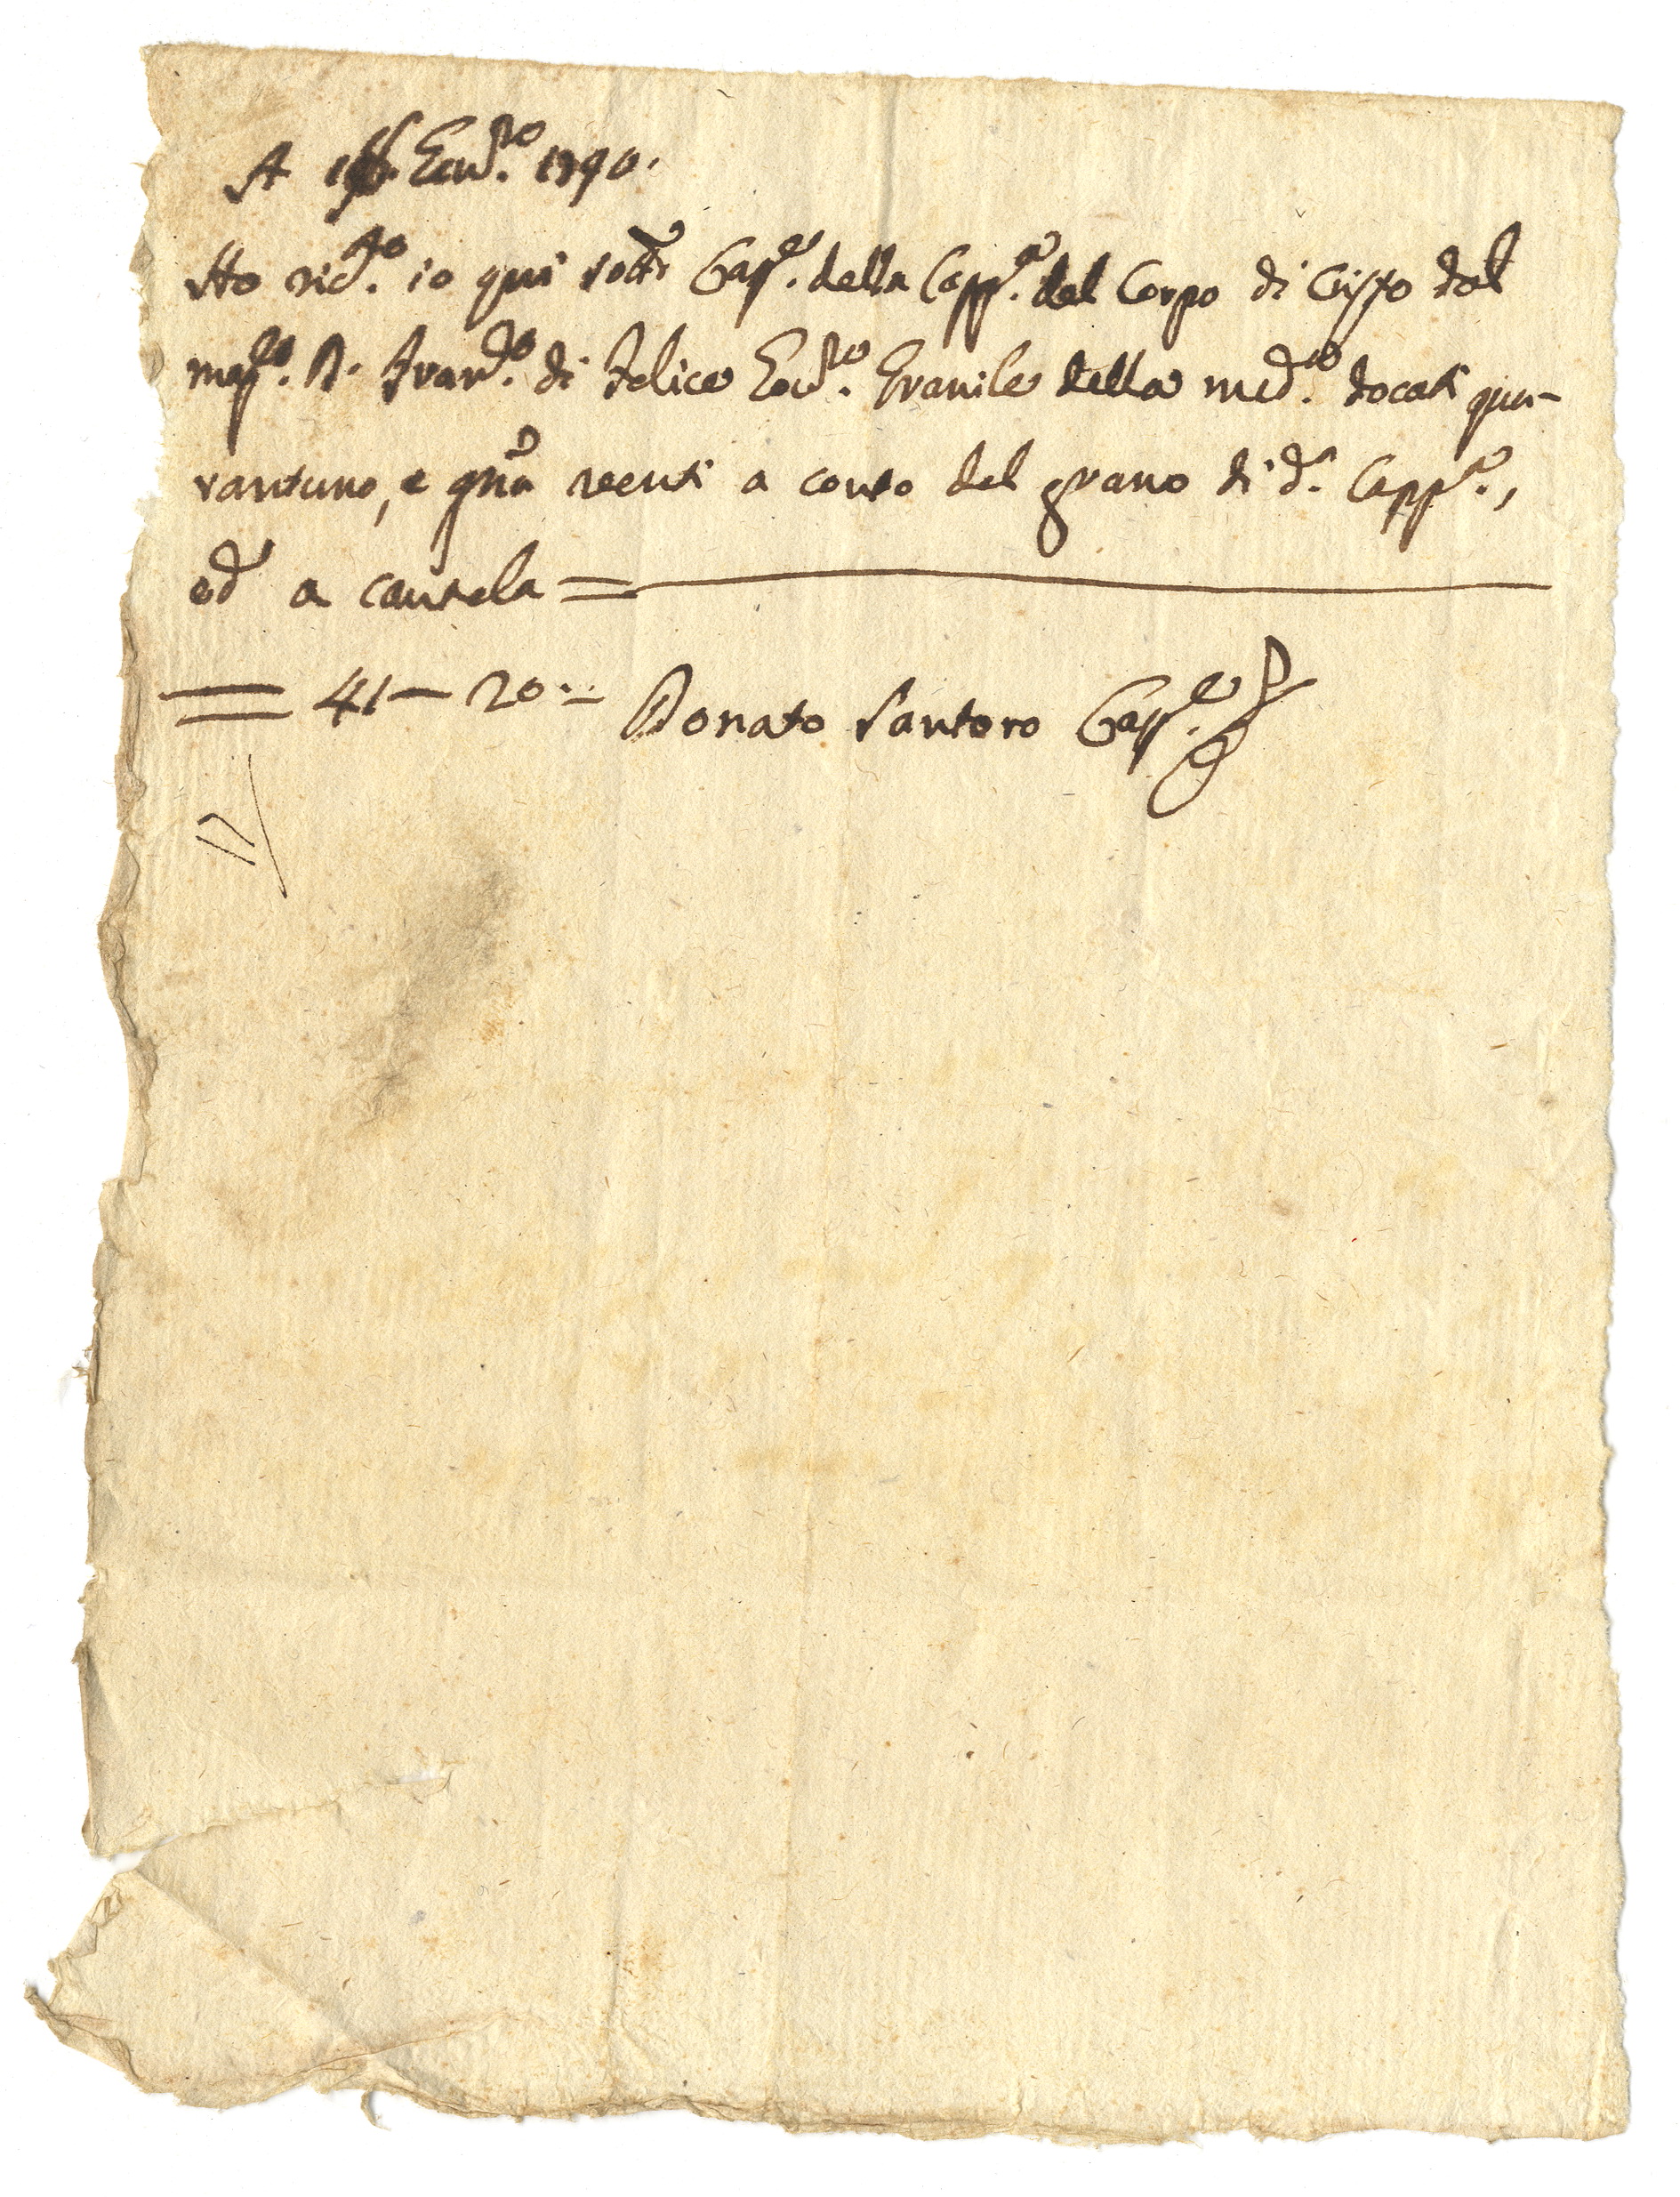 A Gen.ro 1790.
Ho ric.to io qui sott.o Cass.e della Capp.a del Corpo di Cristo dal
mag.co D. Fran.co di Felice Con.ro Granile della med.a docati qua-
rantuno, e gna venti a conto del grano di d.a Capp.a,
ed a cautela =
= 41 - 20 =
Donato Santoro Cass.e